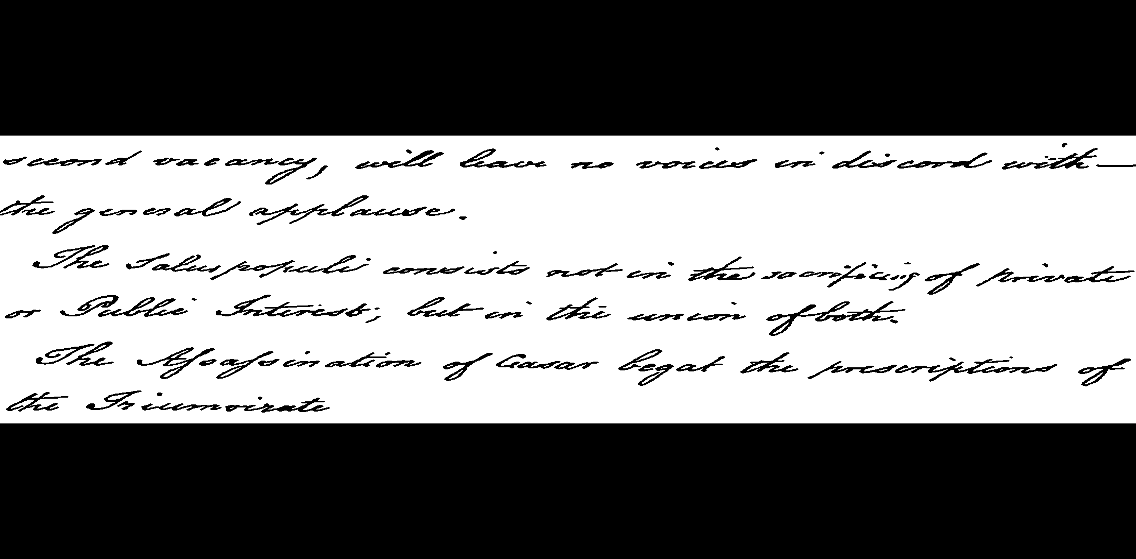 second vacancy, will leave no voices in discord with—
the general applause.
The Salus populi consists not in the sacrificing of private
or Public Interest; but in the union of both.
The Assassination of Casar begat the prescriptions of
the Triumvirate